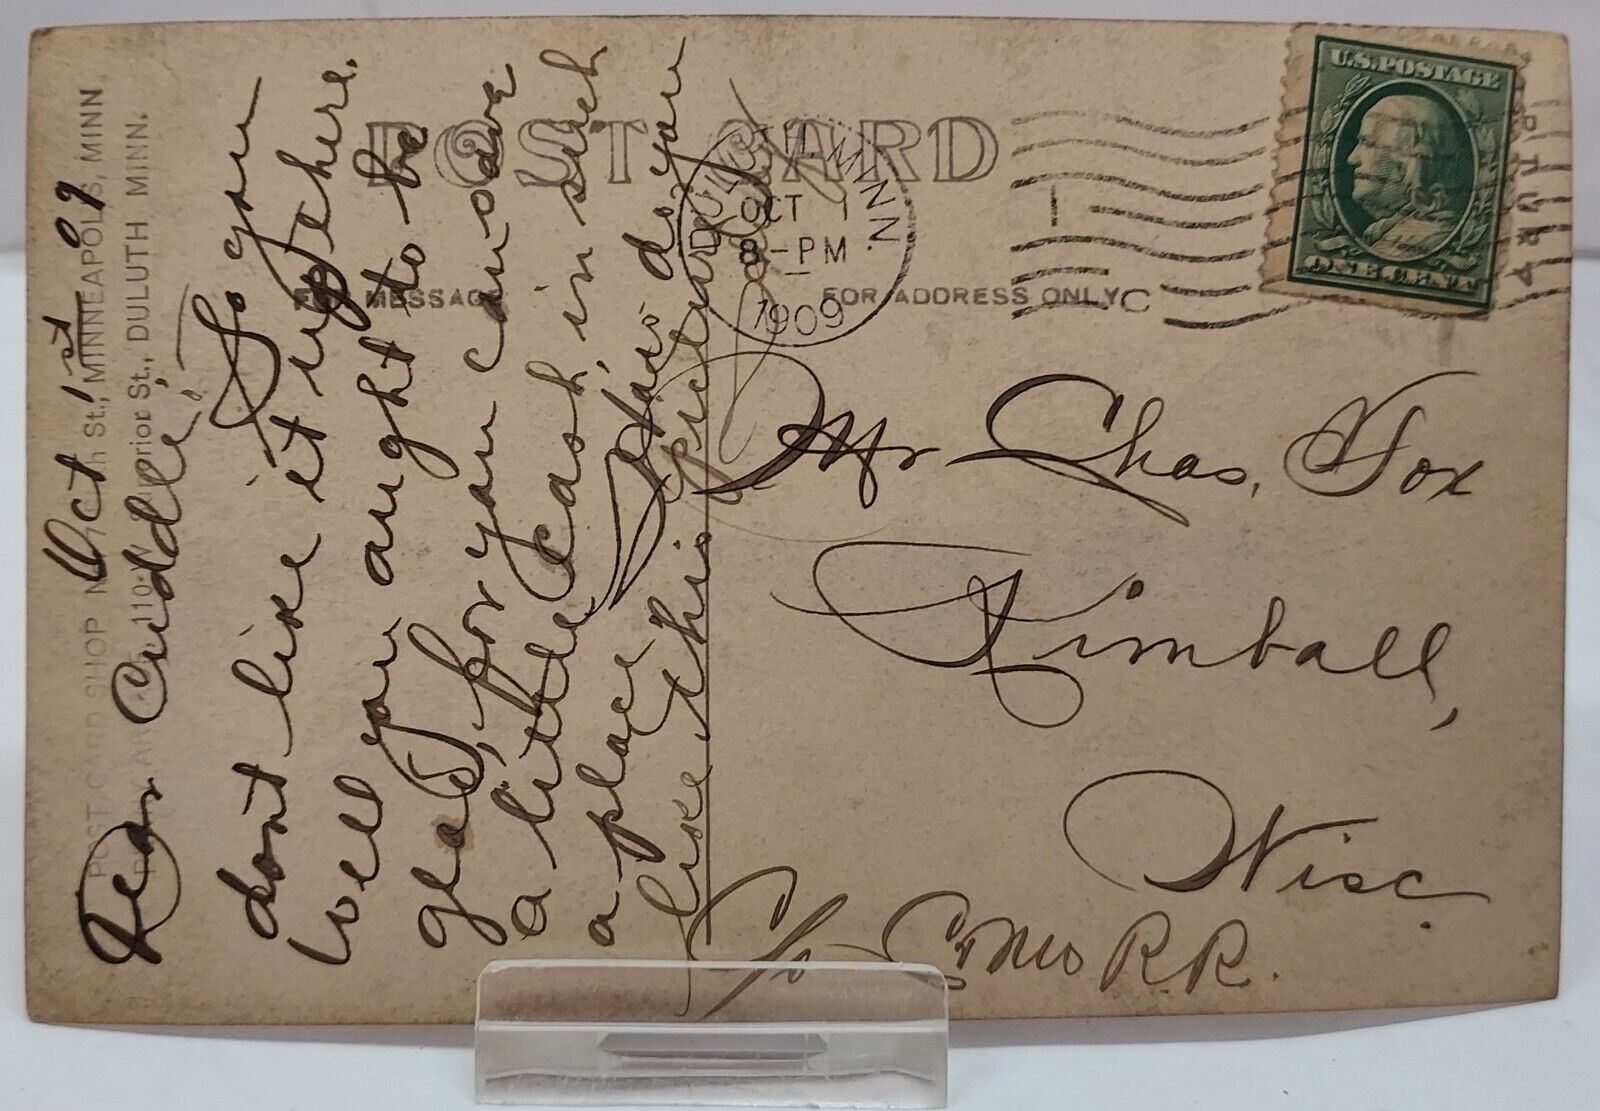 POST CARD
FOR MESSAGE
FOR ADDRESS ONLY
U.S. POSTAGE
ONE CENT
DULUTH, MINN.
OCT 1
8-PM
1909
1
C
POST CARD SHOP
St., MINNEAPOLIS, MINN.
110 St., DULUTH MINN.
Oct 1st 09
Dear Cuddle,
So you
dont like it up there.
Well you aught to be
glad, for you can save
a little cash in such
a place. How do you
like this picture
Mr Chas. Fox
Kimball,
Wisc.
C/o R.R.